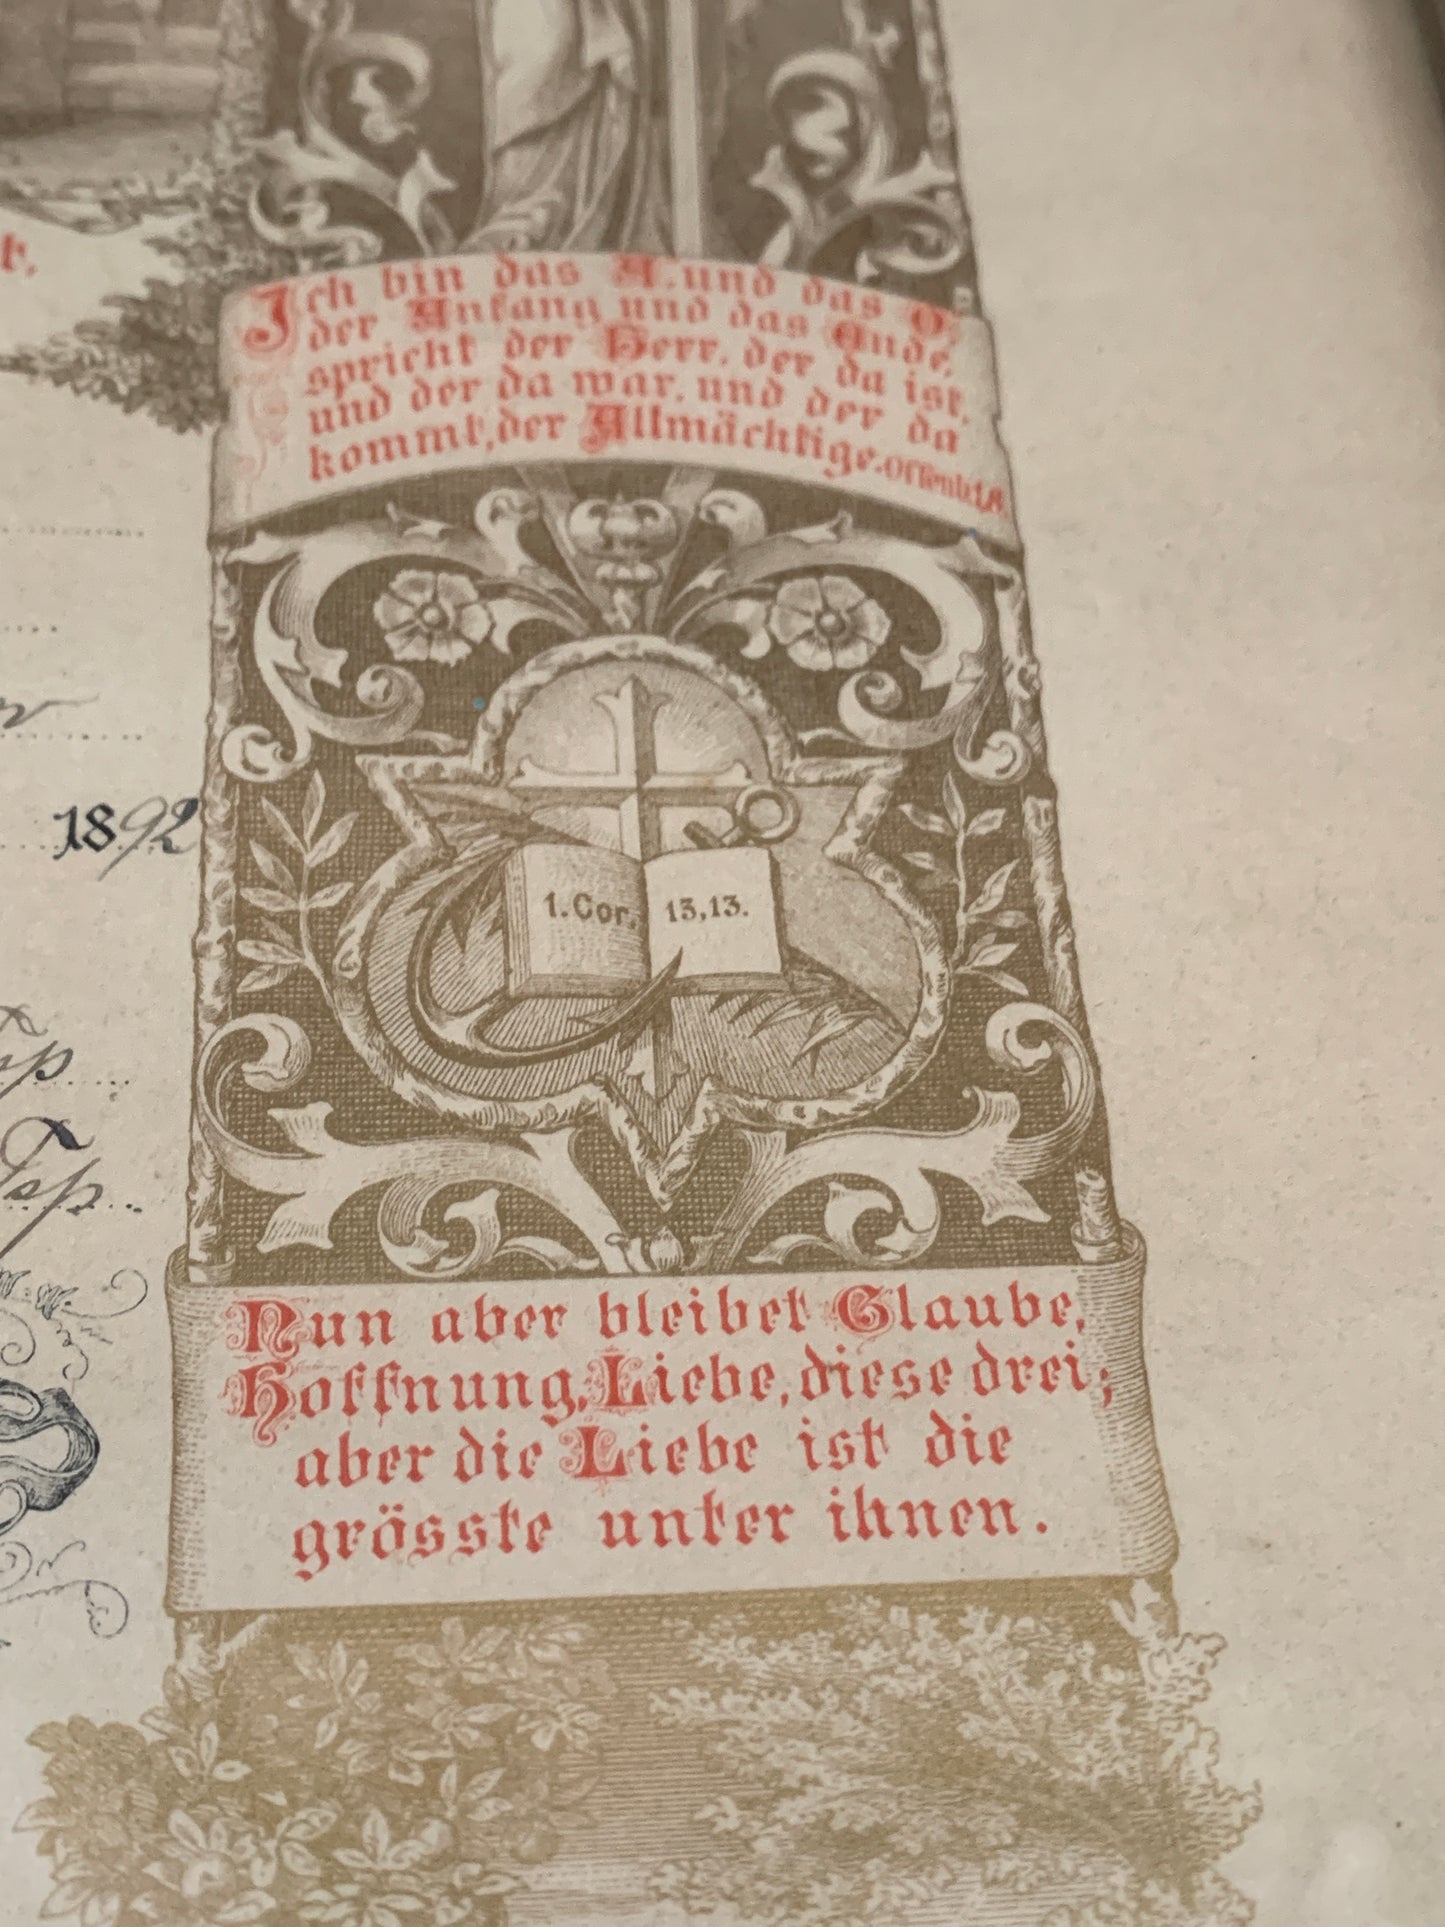 t.
Ich bin das A. und das O,
der Anfang und das Ende,
spricht der Herr, der da ist,
und der da war, und der da
kommt, der Allmächtige. Offenb.1,8.
1892
1. Cor. 13,13.
Nun aber bleibet Glaube,
Hoffnung, Liebe, diese drei;
aber die Liebe ist die
grösste unter ihnen.